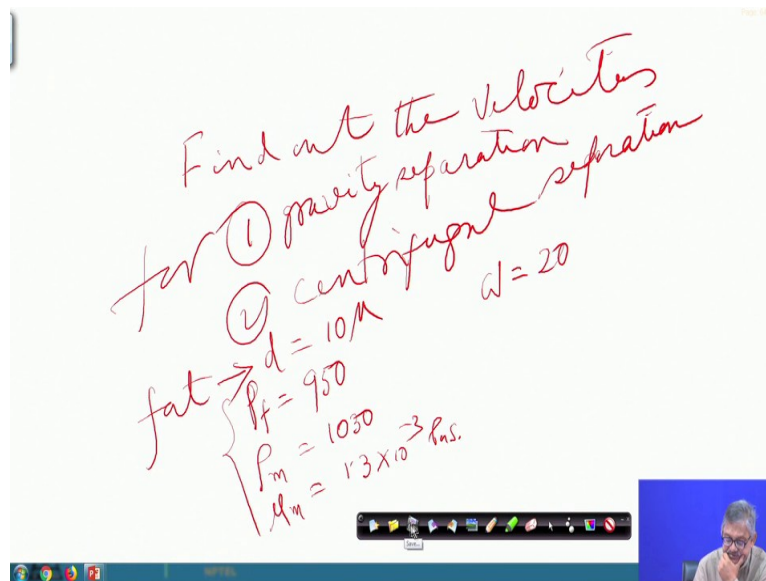 Find out the Velocities
for ① gravity separation
② centrifugal sepration
ω = 20
fat → d = 10 μ
ρf = 950
ρm = 1030
μm = 1.3 × 10⁻³ Pas.
Save...
NPTEL